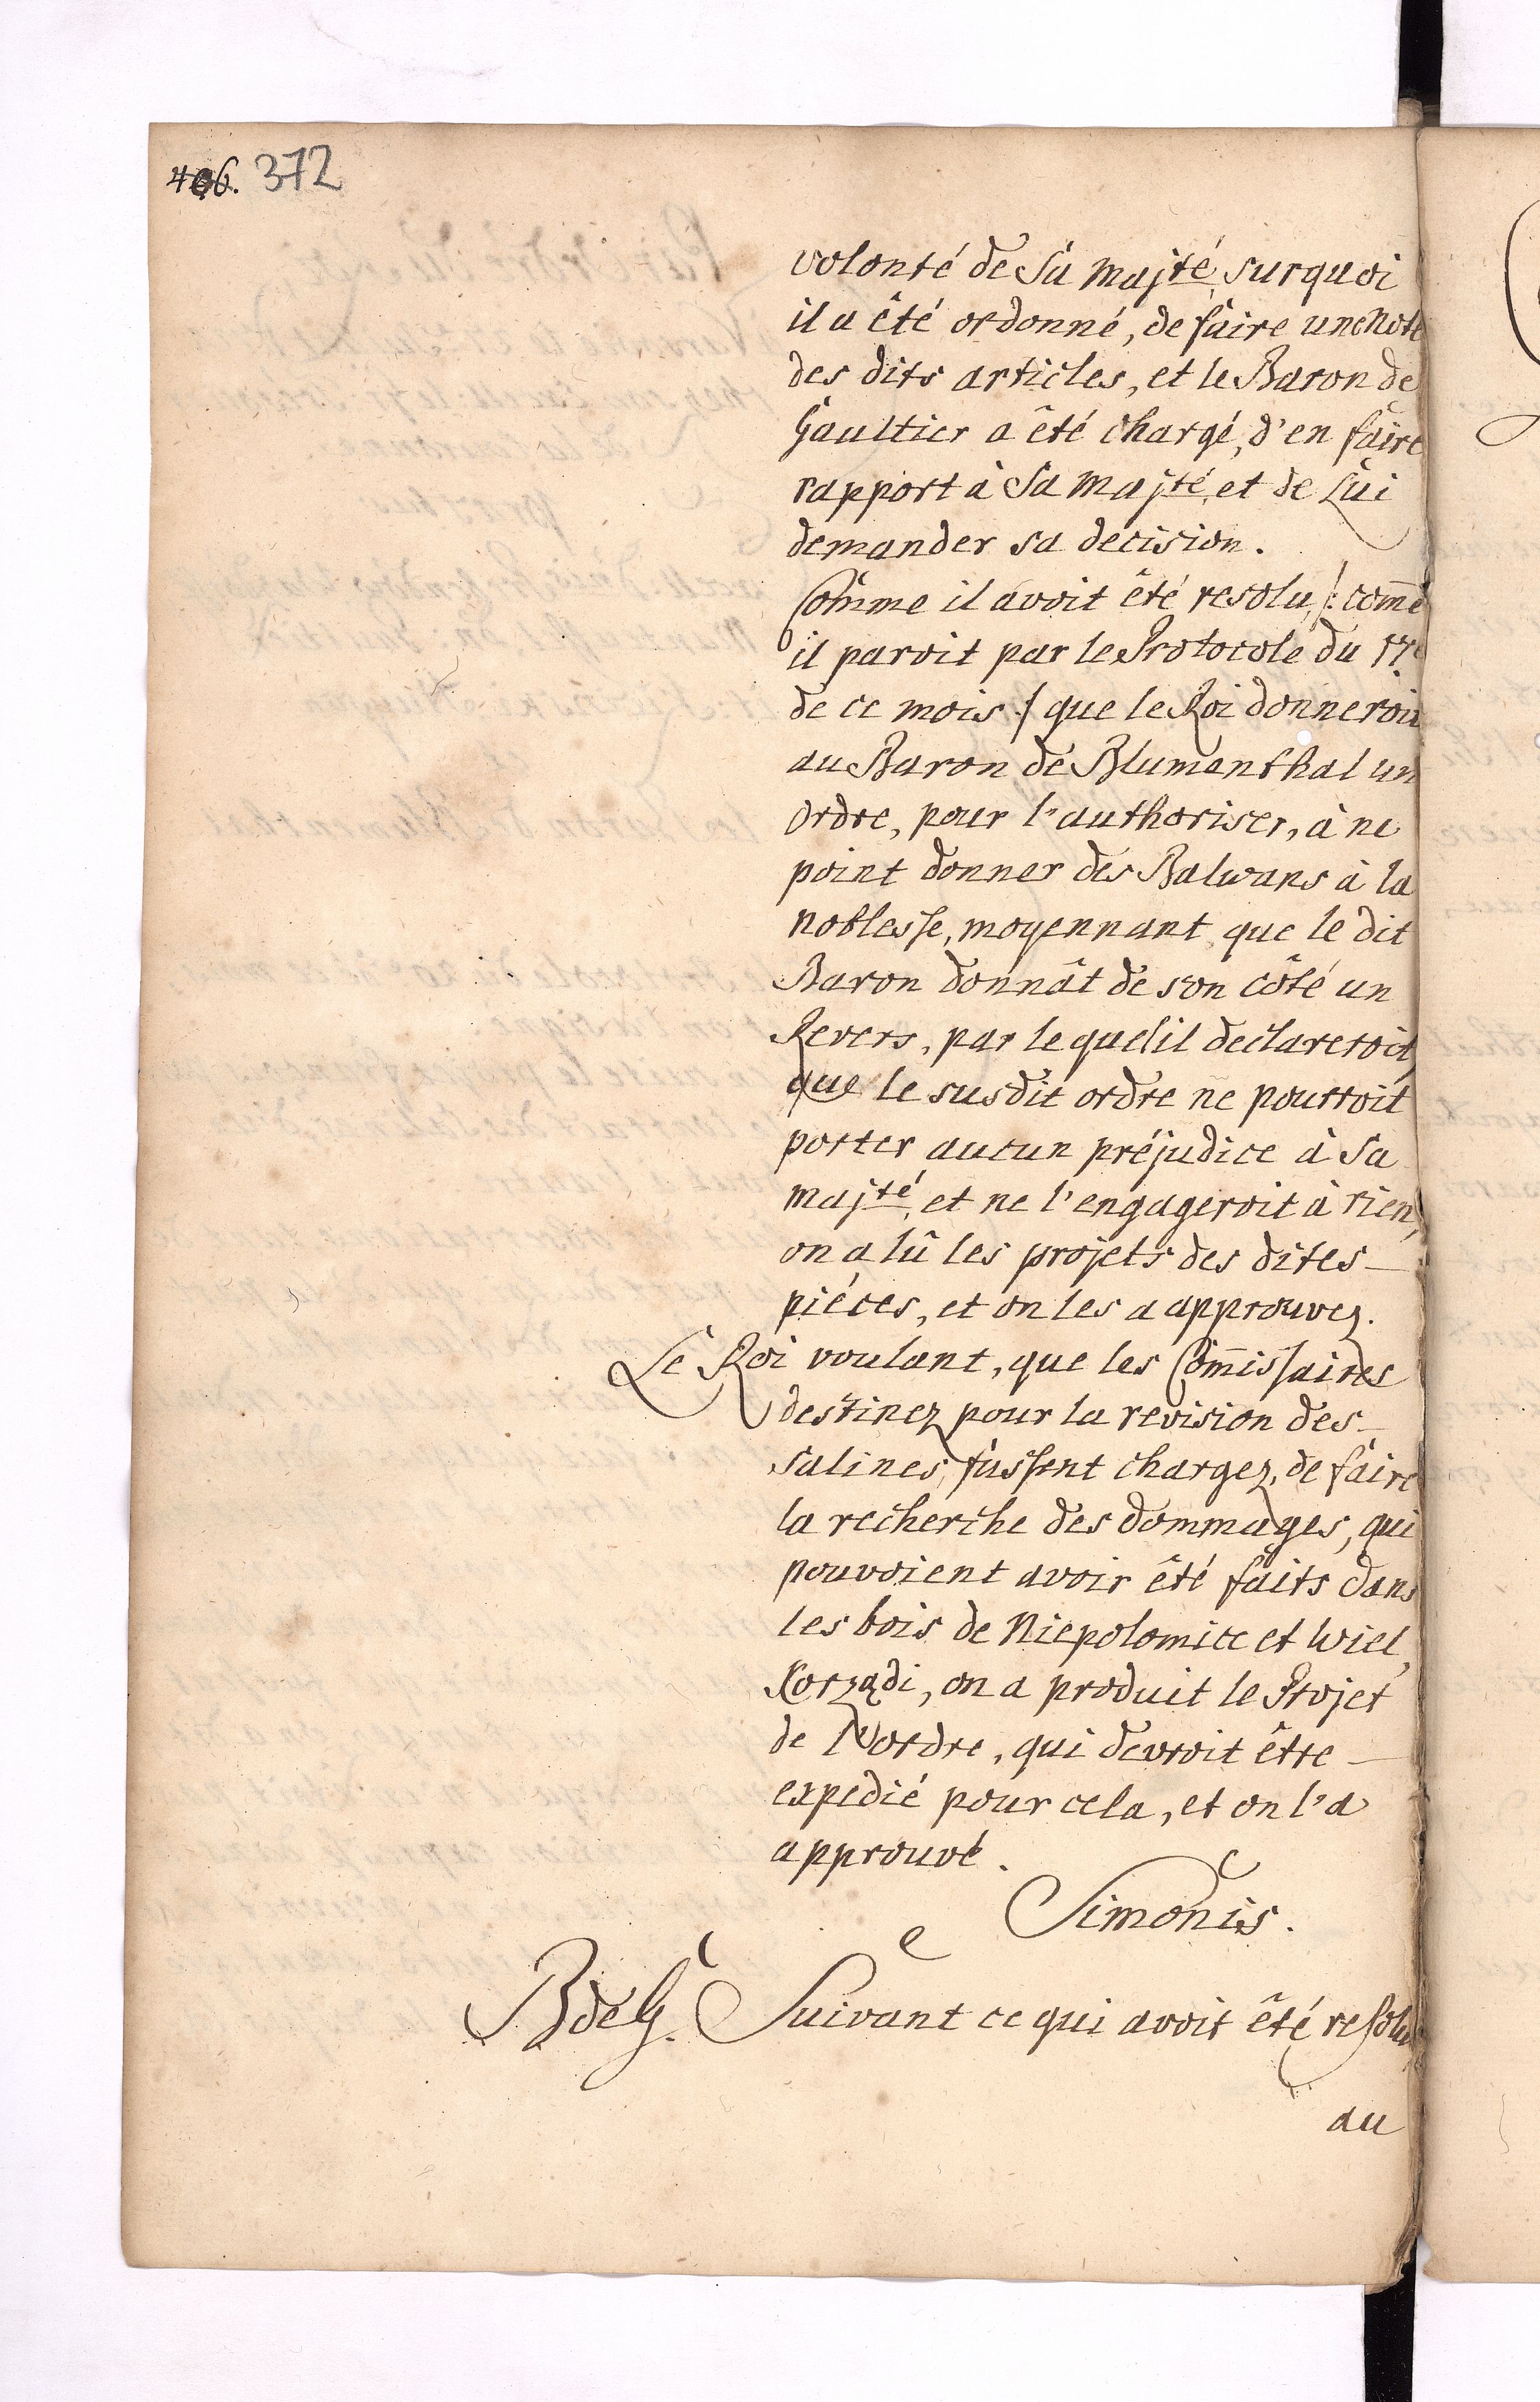 406. 372
volonté de Sa Majté, surquoi
il a êté ordonné, de faire une Note
des dits articles, et le Baron de
Gaultier a êté chargé, d'en faire
rapport à Sa Majté, et de Lui
demander sa decision.
Comme il avoit êté resolu, /: come
il paroit par le Protocole du 17e
de ce mois :/ que le Roi donneroit
au Baron de Blumenthal un
Ordre, pour l'authoriser, à ne
point donner des Balwans à la
Noblesse, moyennant que le dit
Baron donnât de son côté un
Revers, par lequel il declareroit,
que le susdit ordre ne pourroit
porter aucun préjudice à Sa
Majté, et ne l'engageroit à rien,
on a lû les projets des dites
piéces, et on les a approuvez.
Le Roi voulant, que les Comissaires
destinez pour la revision des
Salines, fussent chargez, de faire
la recherche des dommages, qui
pouvoient avoir êté faits dans
les bois de Niepolomice et Wiel,
Korządi, on a produit le Projet
de l'ordre, qui devroit être
expedié pour cela, et on l'a
approuvé.
Simonis.
BdeG. Suivant ce qui avoit êté resolu
au